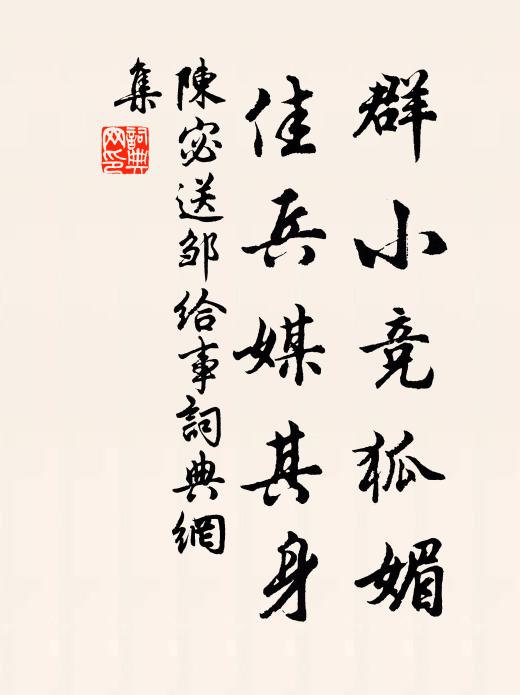 群小竞狐媚
佳兵媒其身
陳宓送邹给事詞典網
集
詞典
网印